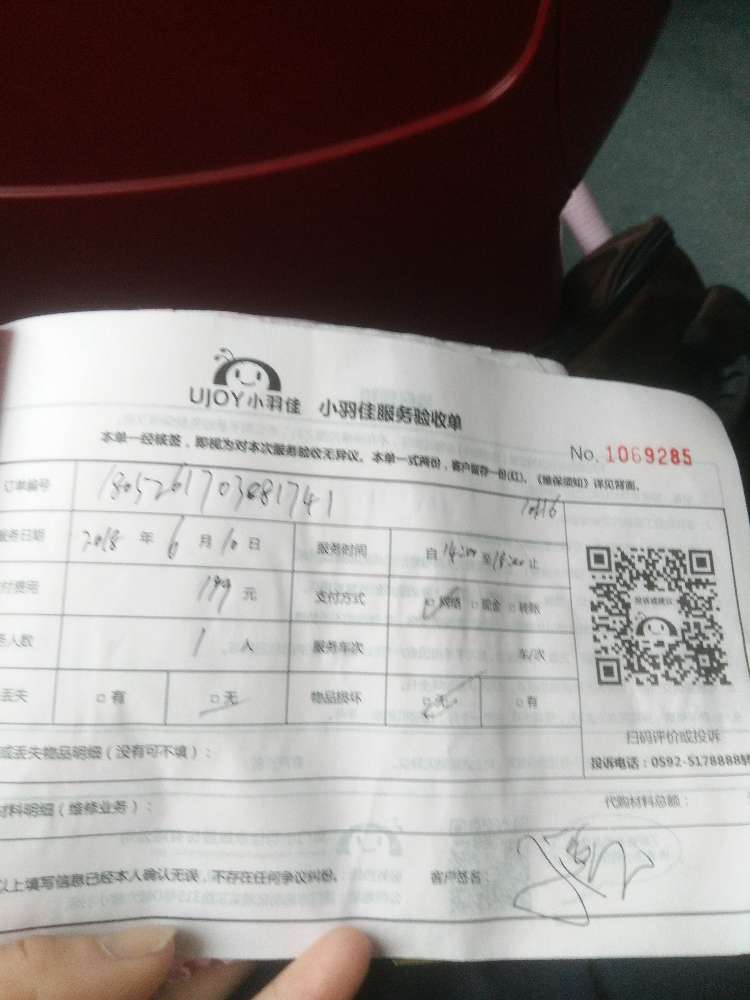 UJOY小羽佳 小羽佳服务验收单
No. 1069285
本单一经核签，即视为对本次服务验收无异议。本单一式两份，客户留存一份(红)。《维保须知》详见背面。
订单编号
服务日期 2018 年 6 月 10 日 服务时间 自 14:00 至 18:00 止
付费用 199 元 支付方式 □网络 □现金 □转账
人数 1 人 服务车次 车/次
丢失 □有 □无 物品损坏 □无 □有
扫码评价或投诉
或丢失物品明细（没有可不填）：
投诉电话：0592-5178888转
材料明细（维修业务）：
代购材料总额：
以上填写信息已经本人确认无误，不存在任何争议纠纷。 客户签名：